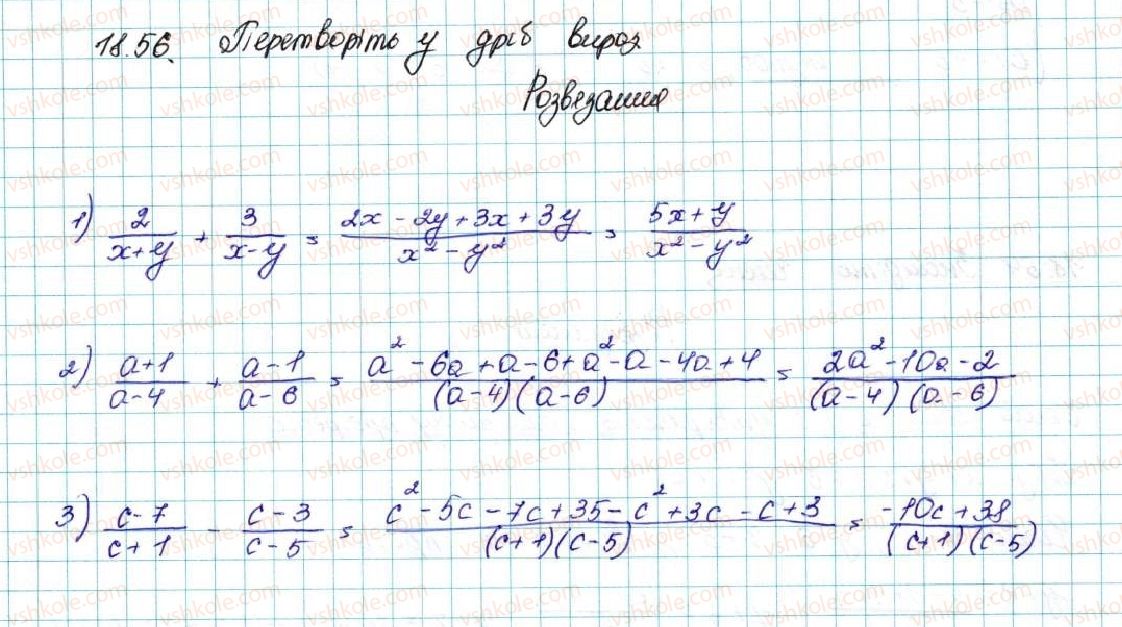 18.56. Перетворіть у дріб вираз
Розвезання
1) 2/(x+y) + 3/(x-y) = (2x - 2y + 3x + 3y)/(x² - y²) = (5x + y)/(x² - y²)
2) (a+1)/(a-4) + (a-1)/(a-6) = (a² - 6a + a - 6 + a² - a - 4a + 4)/((a-4)(a-6)) = (2a² - 10a - 2)/((a-4)(a-6))
3) (c-7)/(c+1) - (c-3)/(c-5) = (c² - 5c - 7c + 35 - c² + 3c - c + 3)/((c+1)(c-5)) = (-10c + 38)/((c+1)(c-5))